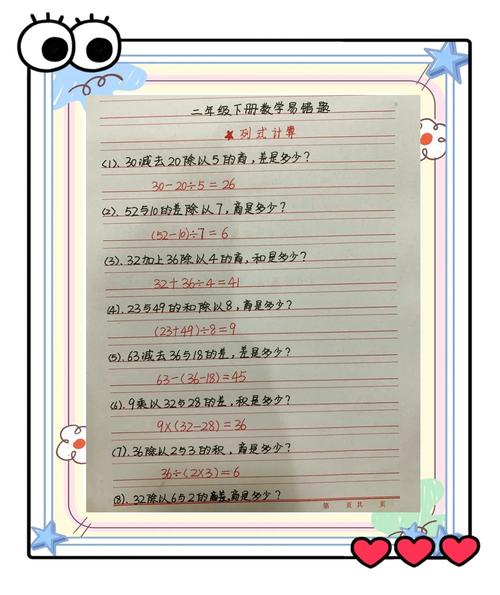 二年级下册数学易错题
★列式计算
(1). 30减去20除以5的商,差是多少?
30-20÷5=26
(2). 52与10的差除以7,商是多少?
(52-10)÷7=6
(3). 32加上36除以4的商,和是多少?
32+36÷4=41
(4). 23与49的和除以8,商是多少?
(23+49)÷8=9
(5). 63减去36与18的差,差是多少?
63-(36-18)=45
(6). 9乘以32与28的差,积是多少?
9×(32-28)=36
(7). 36除以2与3的积,商是多少?
36÷(2×3)=6
(8). 32除以6与2的差,商是多少?
第 页共 页